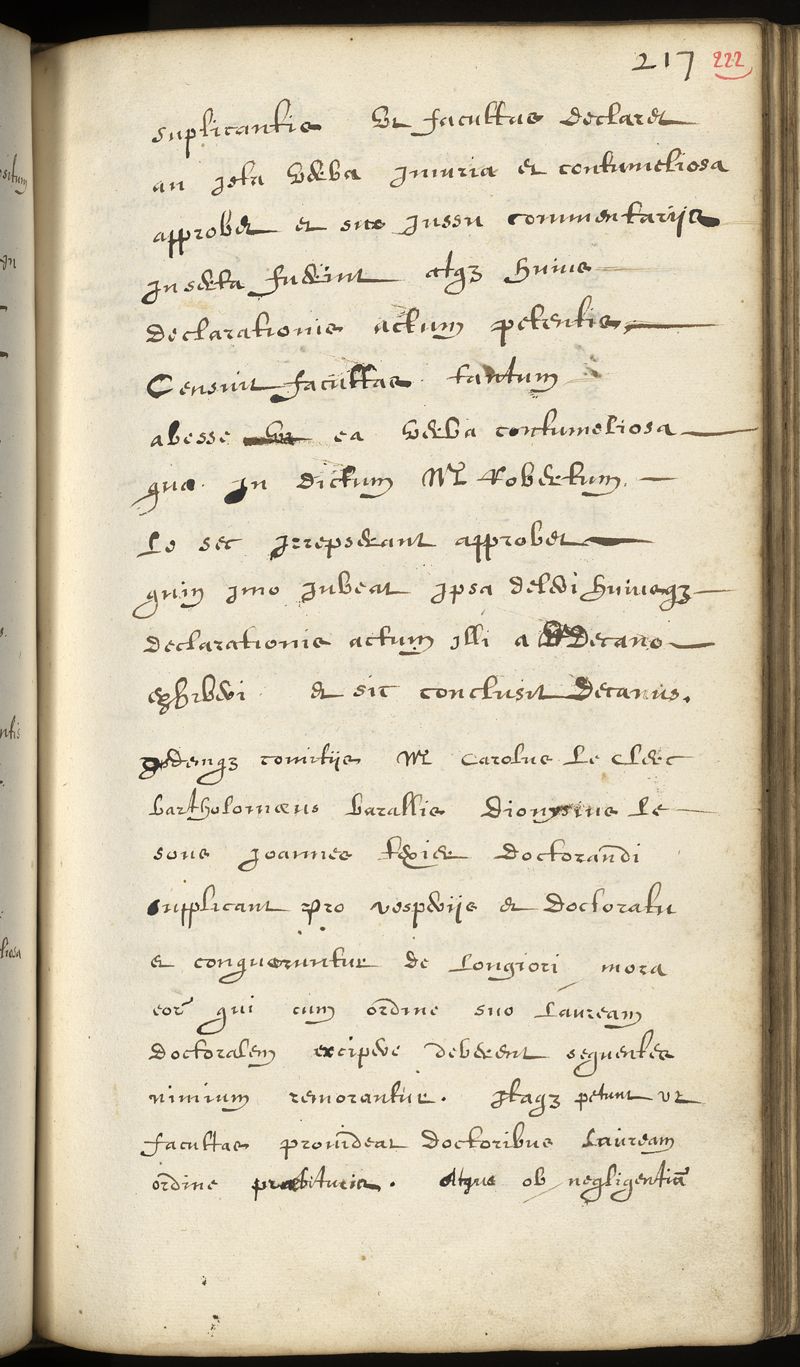 217 222
suplicantis Vt facultas declaret
an ista verba Iniuria et contumeliosa
approbet et suo Iussu commentarijs
Inserta fuerint atq3 huius
declarationis actum petentis,
Censuit facultas tantum
abesse ea verba contumeliosa
quæ In dictum Mr Robertum
Le sec Irrepserant approbet
quin imo Iubeat Ipsa deleri huiusq3
declarationis actum illi a Decano
exhiberi et sic conclusit Decanus.
Iisdemq3 comitijs Mr Carolus Le Clerc
bartholomæus barallis dionysius Le
sous Joannes texier doctorandi
supplicant pro vesperijs et doctoratu
et conqueruntur de Longiori mora
eor qui cum ordine suo Lauream
doctoralem excipere deberent sequentes
nimium remorantur. Itaq3 petunt ut
facultas prouideat doctoribus Lauream
ordine præbituris. Atque ob negligentiā